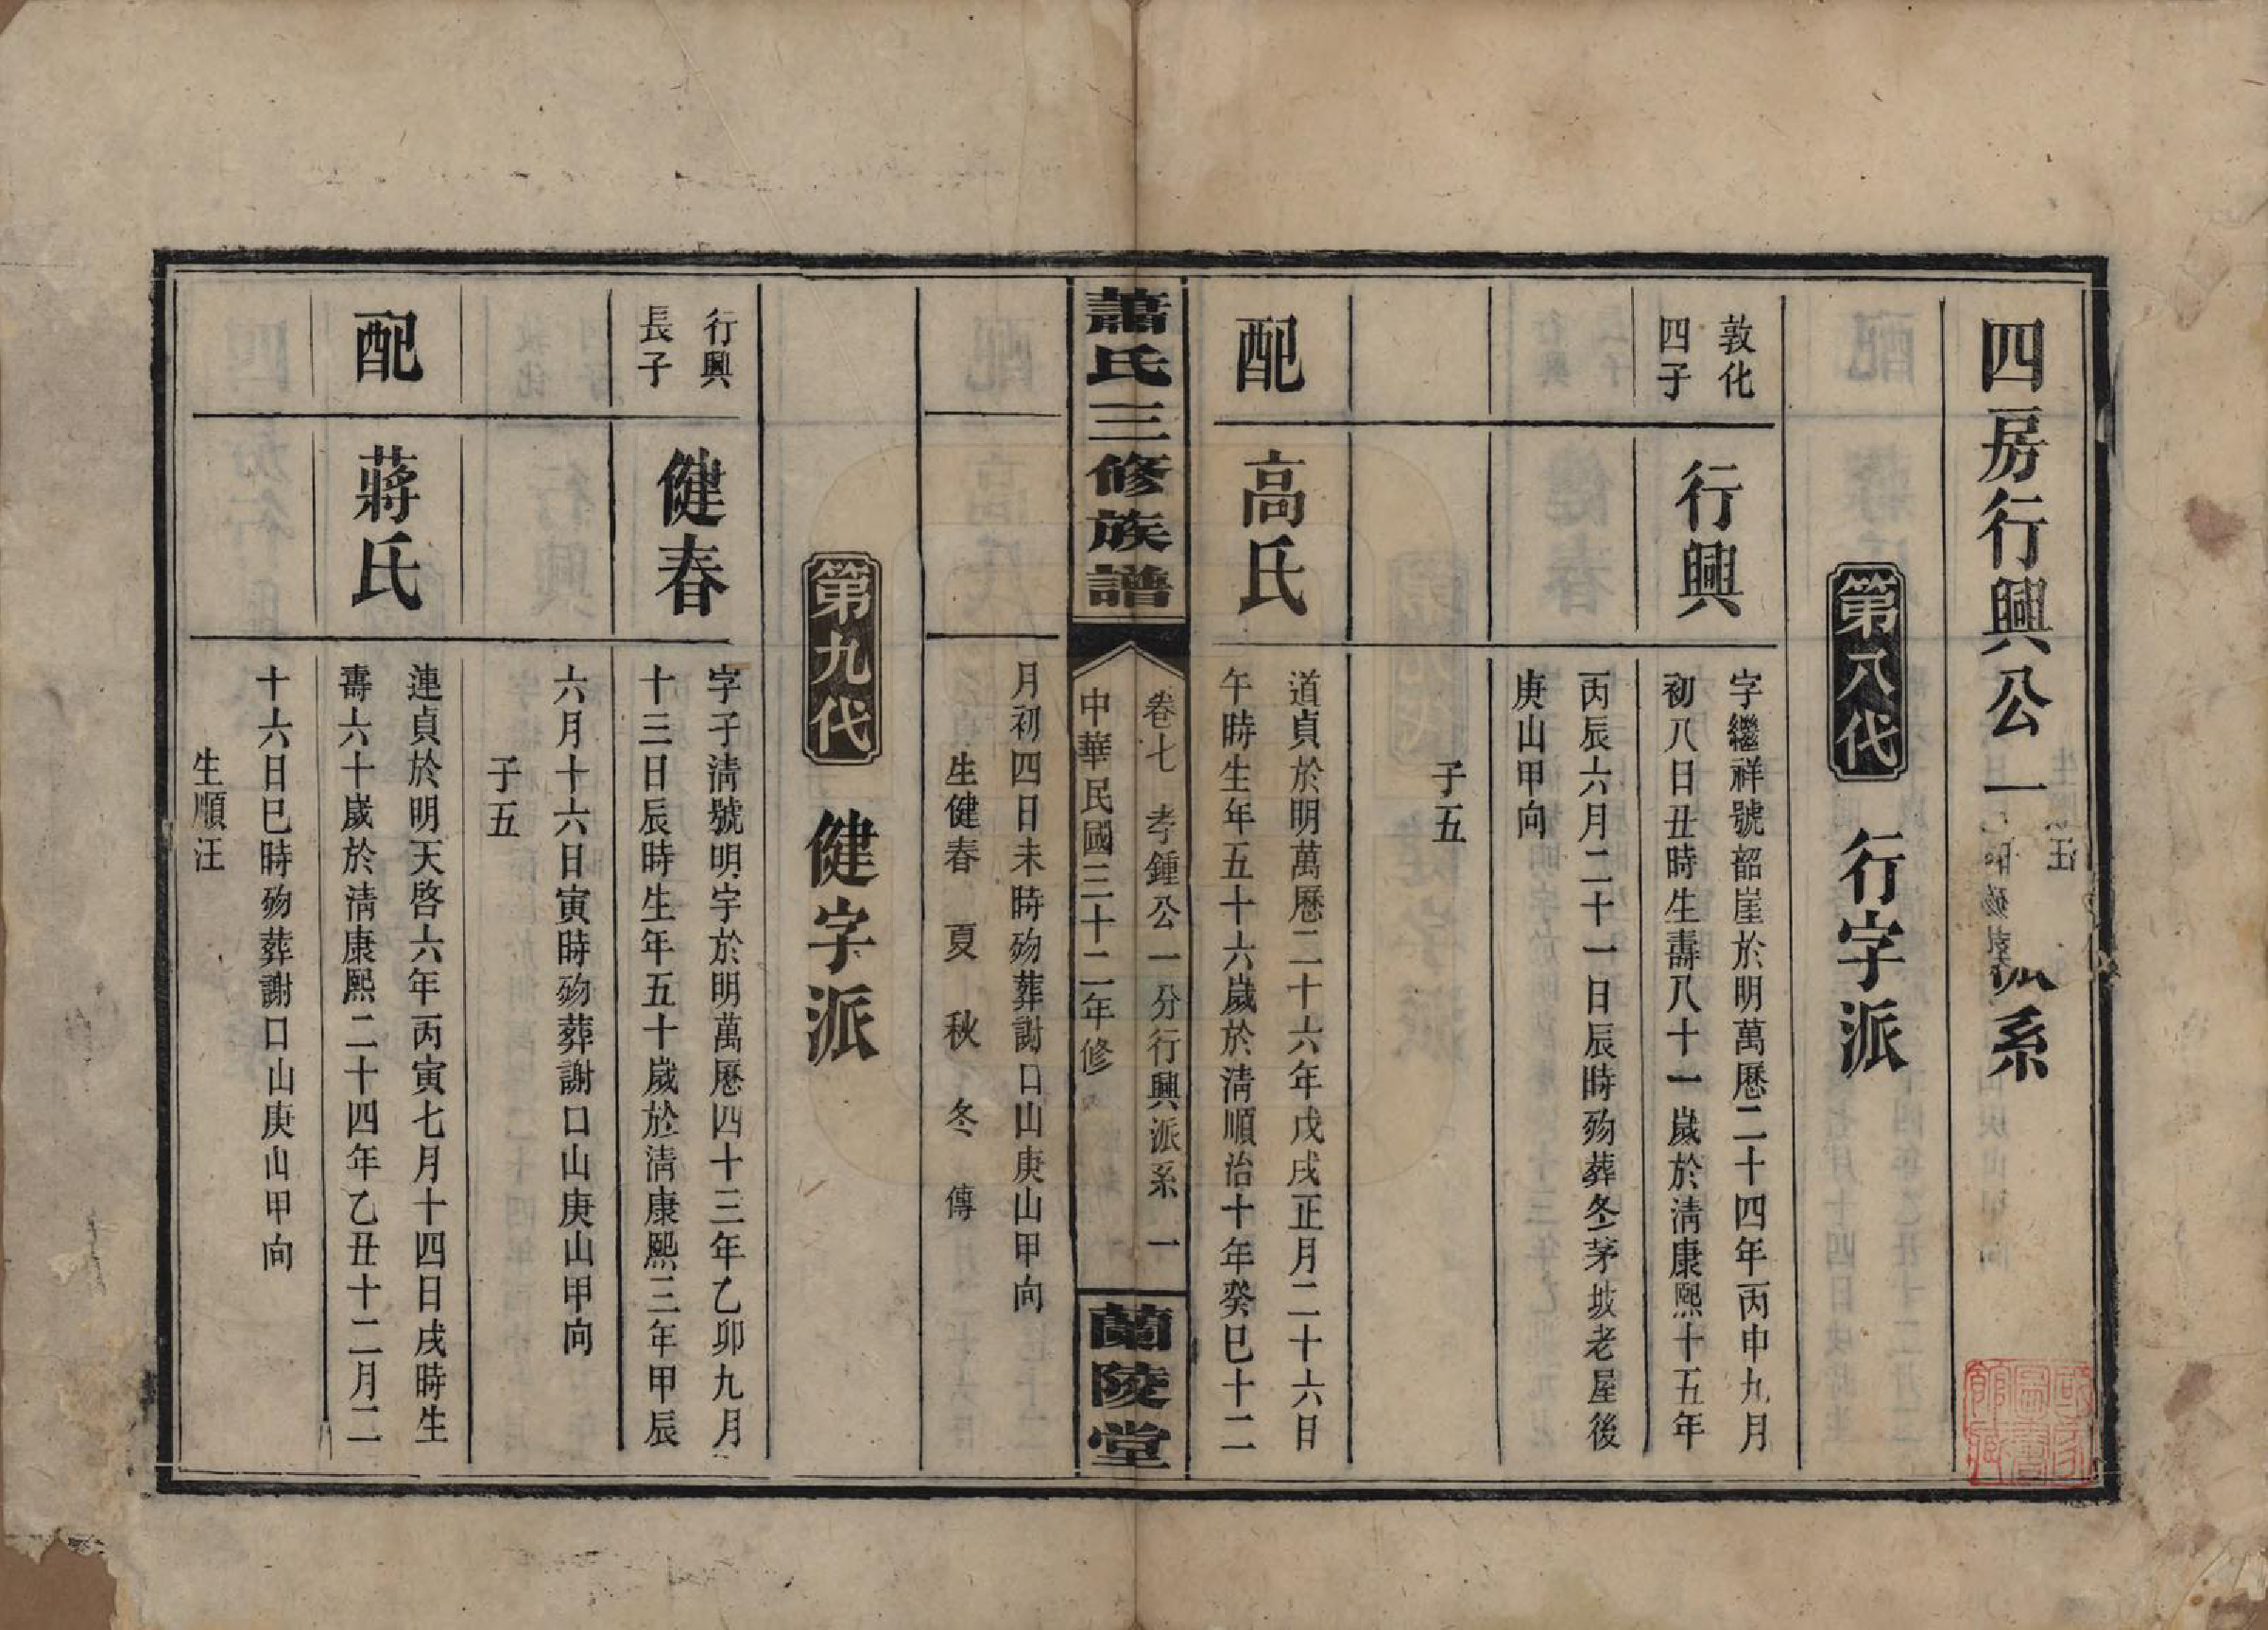 四房行興公一派系
第八代 行字派
敦化
四子
行興
字繼祥號韶崖於明萬曆二十四年丙申九月
初八日丑時生壽八十一歲於淸康熙十五年
丙辰六月二十一日辰時歿葬冬茅坡老屋後
庚山甲向
子五
配
高氏
道貞於明萬曆二十六年戊戌正月二十六日
午時生年五十六歲於淸順治十年癸巳十二
蕭氏三修族譜
卷七 孝鍾公一分行興派系 一
中華民國三十二年修
蘭陵堂
月初四日未時歿葬謝口山庚山甲向
生健春 夏 秋 冬 傳
第九代 健字派
行興
長子
健春
字子淸號明宇於明萬曆四十三年乙卯九月
十三日辰時生年五十歲於淸康熙三年甲辰
六月十六日寅時歿葬謝口山庚山甲向
子五
配
蔣氏
連貞於明天啓六年丙寅七月十四日戌時生
壽六十歲於淸康熙二十四年乙丑十二月二
十六日巳時歿葬謝口山庚山甲向
生順汪